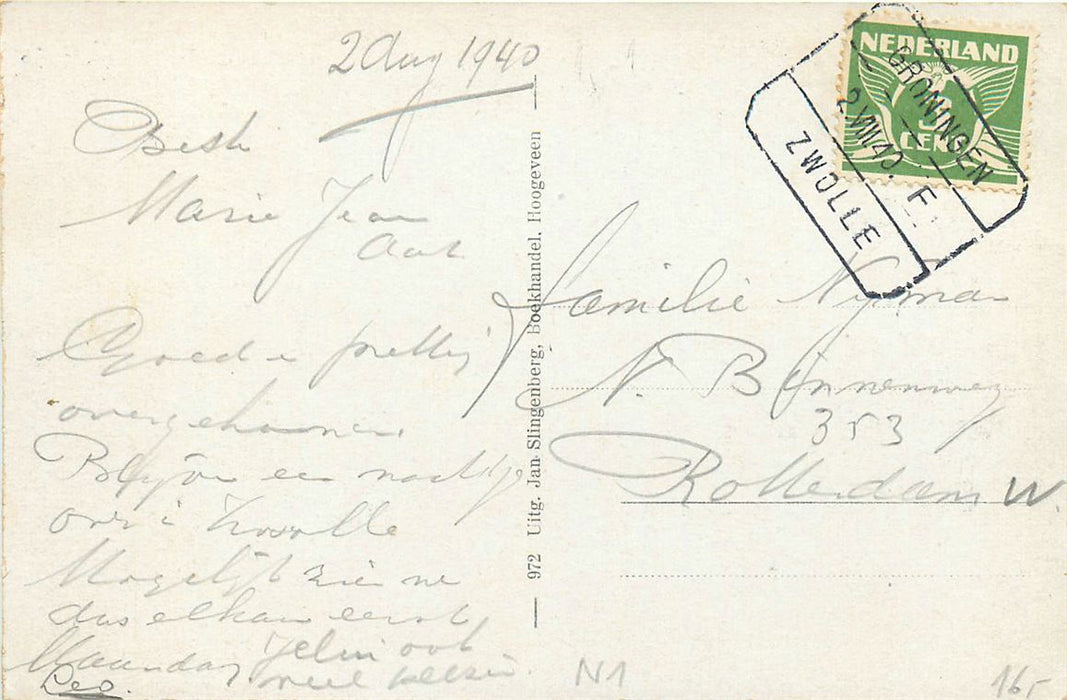 2 Aug 1940
Beste
Marie Jean
Aart
Goed e prettig
overgekomen.
Blijven een nachtje
over i Zwolle
Mogelijk zien we
dus elkaar eerst
Maandag
ook
veel
Leo.
972 Uitg. Jan Slingenberg, Boekhandel, Hoogeveen
NEDERLAND
5
CENT
GRONINGEN
2.VIII40. F
ZWOLLE
Familie Nijman
N. Binnenweg
353
Rotterdam W.
N1
16,-